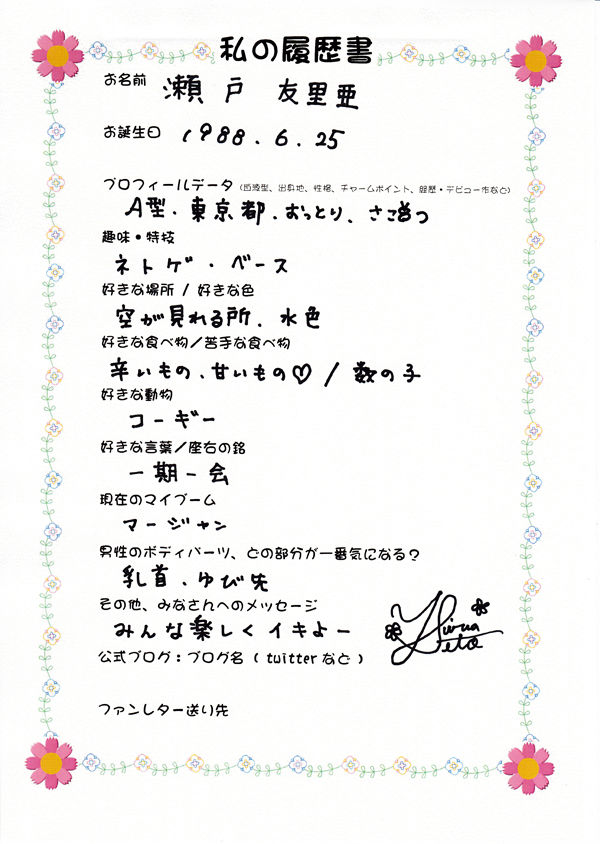 私の履歴書
お名前 瀬戸 友里亜
お誕生日 1988.6.25
プロフィールデータ (血液型、出身地、性格、チャームポイント、芸歴・デビュー作など)
A型.東京都.おっとり、さこつ
趣味・特技
ネトゲ・ベース
好きな場所 / 好きな色
空が見れる所.水色
好きな食べ物/苦手な食べ物
辛いもの、甘いもの♡ / 数の子
好きな動物
コーギー
好きな言葉/座右の銘
一期一会
現在のマイブーム
マージャン
男性のボディパーツ、どの部分が一番気になる?
乳首.ゆび先
その他、みなさんへのメッセージ
みんな楽しくイキよー
公式ブログ:ブログ名 ( twitterなど )
ファンレター送り先